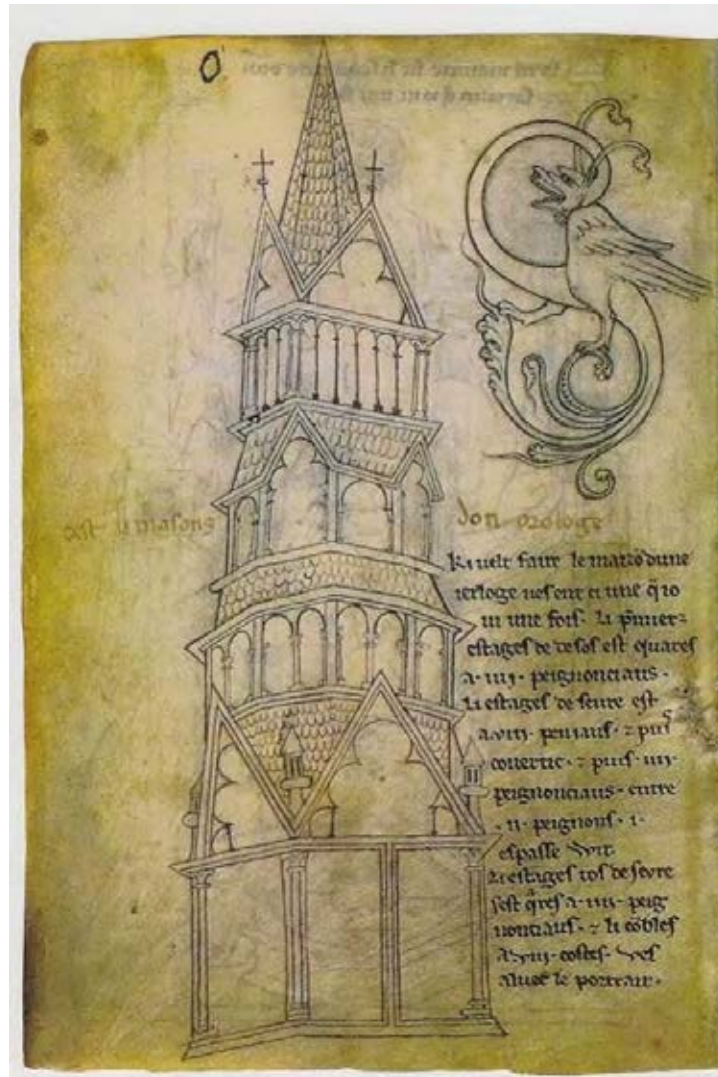 cest li masons don orologe
Ki velt faire le maizō dune
ierloge ves ent ci une q̄ io
vi une fois. Li p̄mier
estages de desos est quares
a .iiii. peignonciaus.
Li estages deseure est
a .viii. peniaus. ⁊ puis
covertic. ⁊ puis .iiii.
peignonciaus. entre
.ii. peignons .i.
espasse wit
Li estages tos deseure
sest q̄res a .iiii. peig
nonciaus. ⁊ li cōbles
a .viii. costes. ves
aluec le portrait.